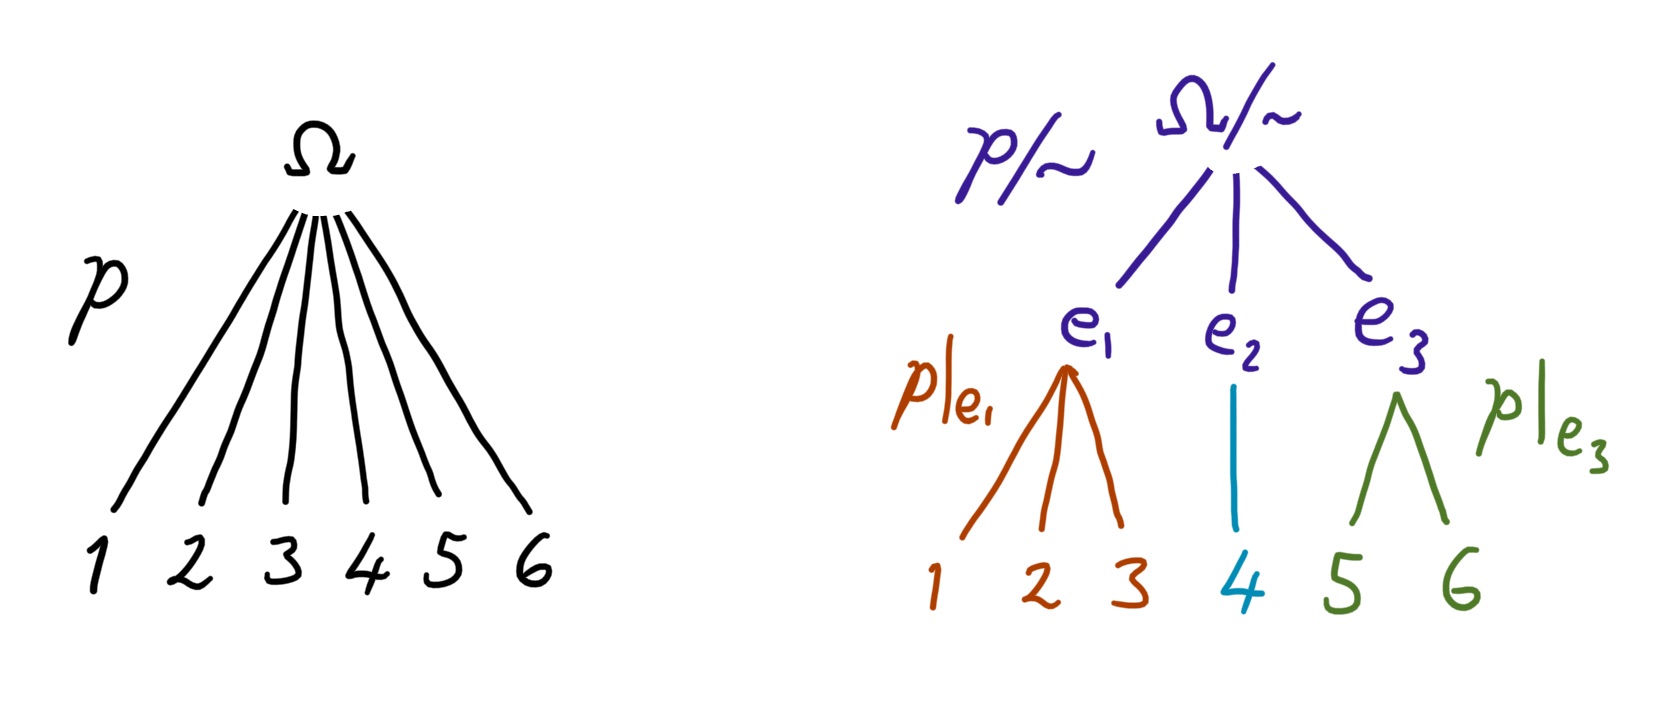 Ω
p
1 2 3 4 5 6
p/~ Ω/~
e₁ e₂ e₃
p|e₁ p|e₃
1 2 3 4 5 6